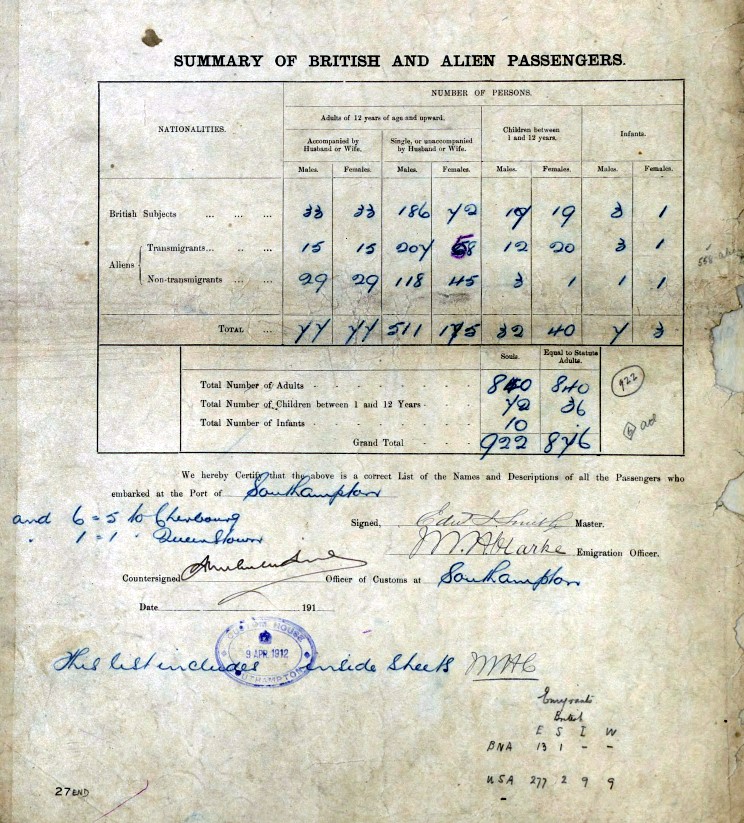 SUMMARY OF BRITISH AND ALIEN PASSENGERS.
NUMBER OF PERSONS.
NATIONALITIES.
Adults of 12 years of age and upward.
Children between 1 and 12 years.
Infants.
Accompanied by Husband or Wife.
Single, or unaccompanied by Husband or Wife.
Males. Females. Males. Females. Males. Females. Males. Females.
British Subjects ... ... ... 33 33 186 72 17 19 3 1
Aliens
Transmigrants... ... ... 15 15 207 58 12 20 3 1
Non-transmigrants ... ... 29 29 118 45 3 1 1 1
TOTAL ... 77 77 511 175 32 40 7 3
Souls. Equal to Statute Adults.
Total Number of Adults - - - 840 840
Total Number of Children between 1 and 12 Years - 72 36
Total Number of Infants - - - 10 .
Grand Total - - - 922 876
922
We hereby Certify that the above is a correct List of the Names and Descriptions of all the Passengers who
embarked at the Port of Southampton
and 6 = 5 to Cherbourg
" 1 = 1 " Queenstown
Signed, Edwd J. Smith Master.
Emigration Officer.
Countersigned
Officer of Customs at Southampton
Date 191
CUSTOM HOUSE
9 APR. 1912
SOUTHAMPTON
This list includes inside sheets MHC
Emigrants
British
E S I W
BNA 13 1 - -
USA 277 2 9 9
27 END